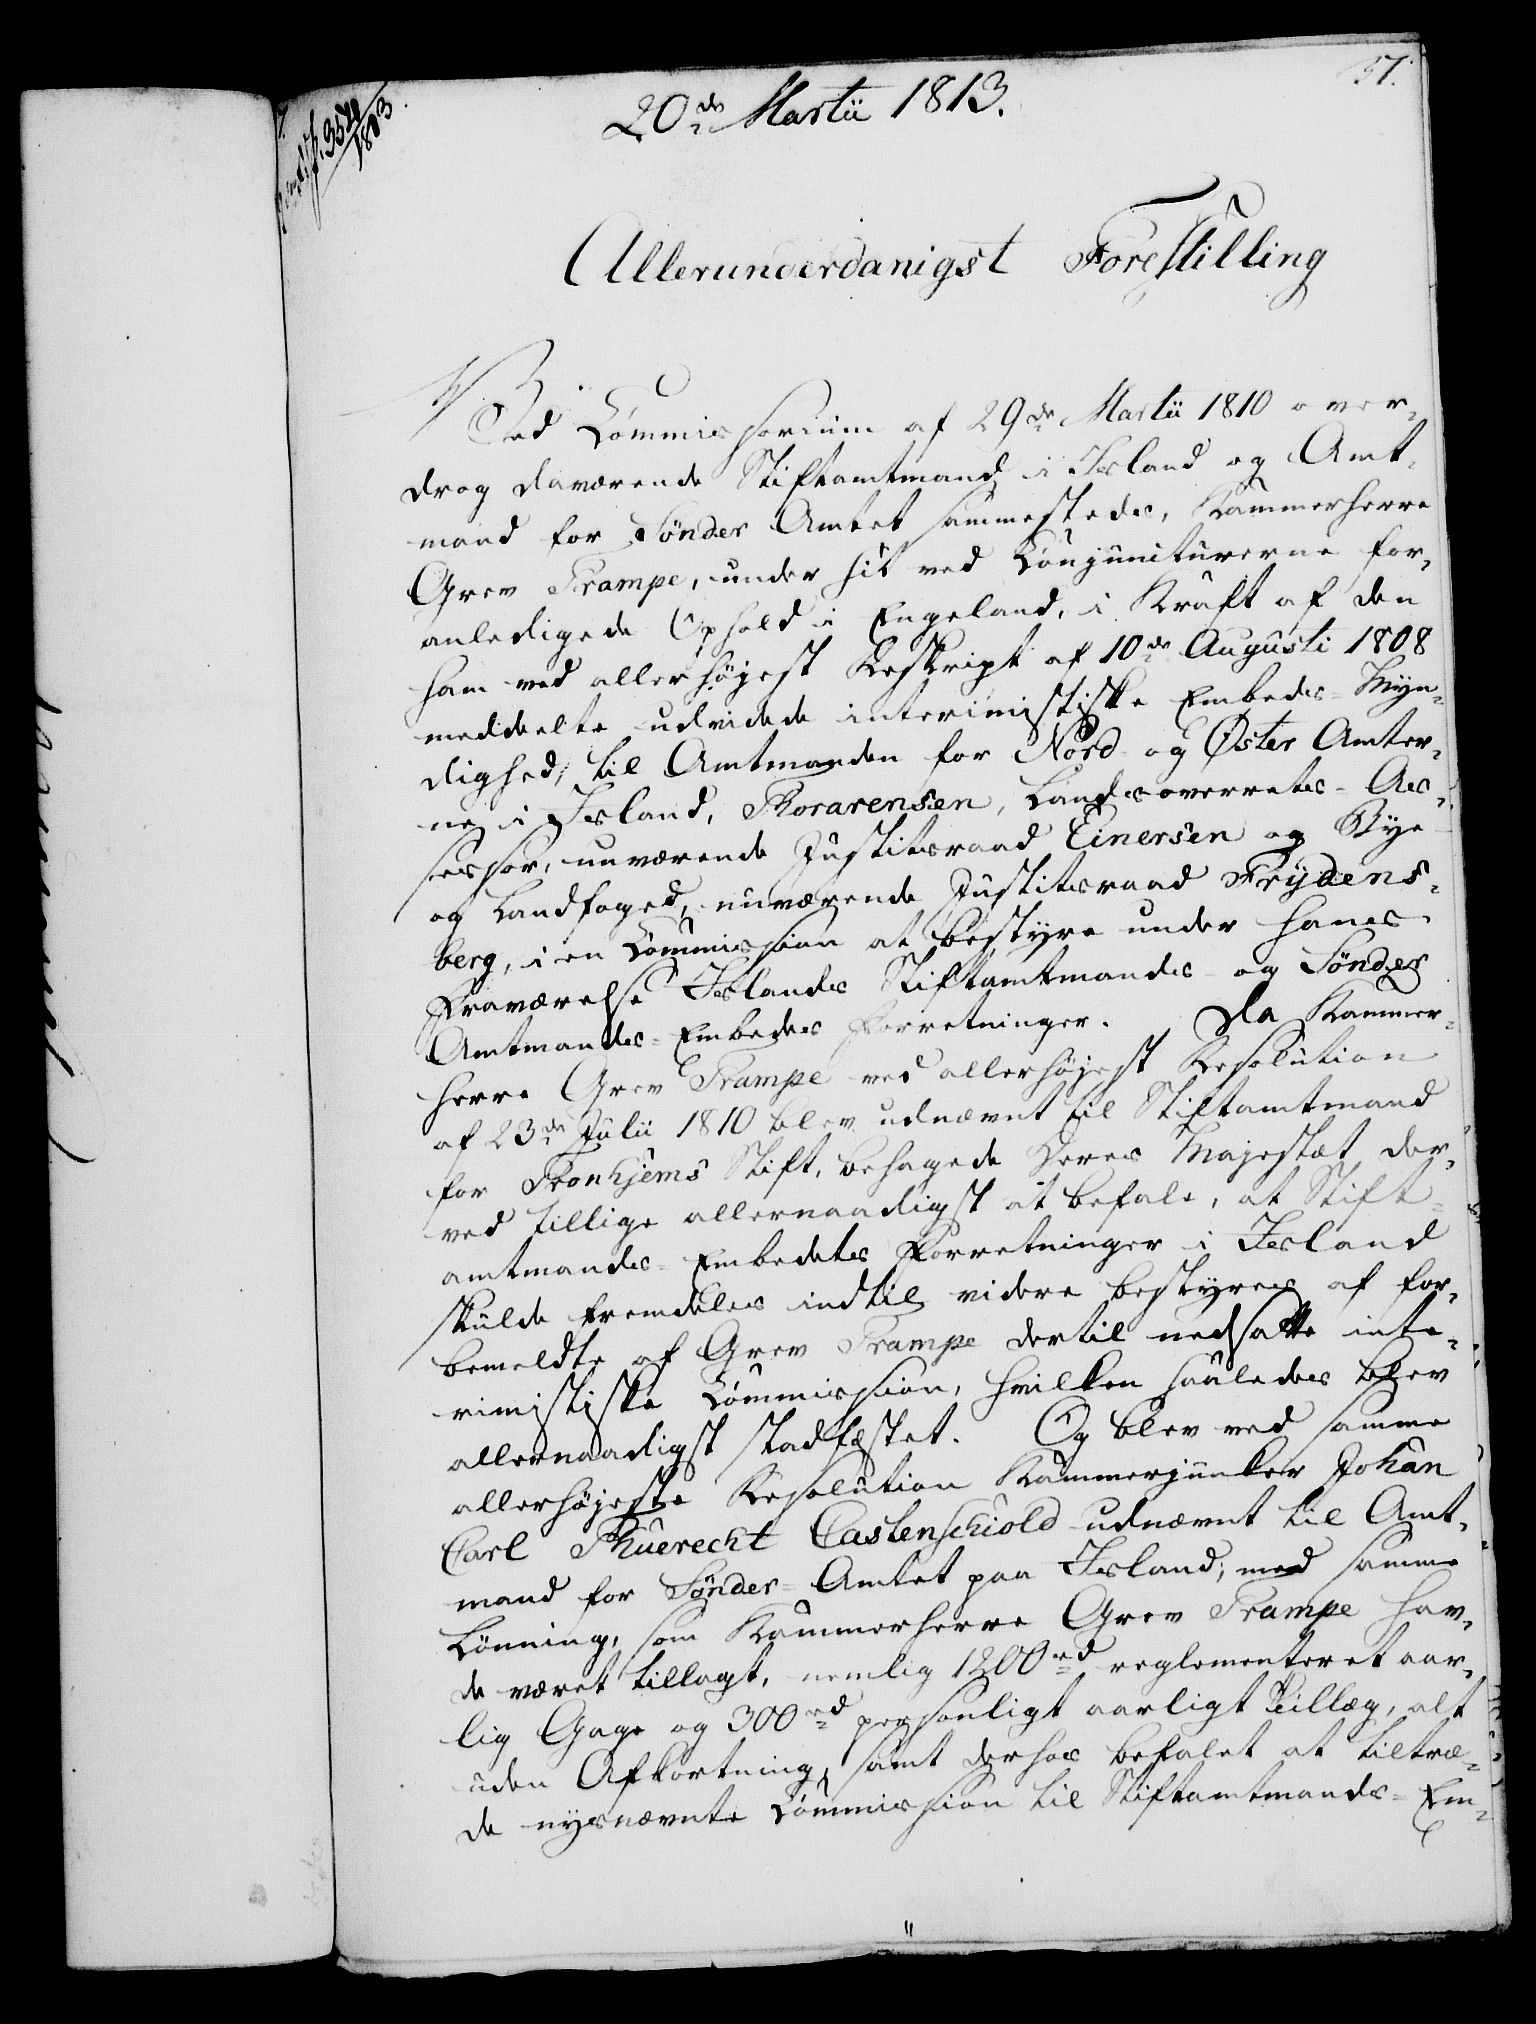 57.
20de Martii 1813.
Allerunderdanigst Forestilling
Ved Commissorium af 29de Martii 1810 over-
drog daværende Stiftamtmand i Island og Amt-
mand for Sønder Amtet sammesteds, Kammerherre
Grev Trampe, under sit ved Conjuncturerne for-
anledigede Ophold i Engeland, i Kraft af den
ham ved allerhøjest Reskript af 10de Augusti 1808
meddeelte udvidede interimistiske Embeds-Myn-
dighed, til Amtmanden for Nord- og Øster Amter-
ne i Island, Thorarensen, Landsoverrets-As-
sessor, nuværende Justitsraad Einersen og Bye-
og Landfoged, nuværende Justitsraad Frydens-
berg, i en Commission at bestyre under hans
Fraværelse Islands Stiftamtmands- og Sønder
Amtmands-Embedes Forretninger. Da Kammer-
herre Grev Trampe ved allerhøjest Resolution
af 23de Julii 1810 blev udnævnt til Stiftamtmand
for Tronhjems Stift, behagede Deres Majestæt der-
ved tillige allernaadigst at befale, at Stift-
amtmands-Embedets Forretninger i Island
skulde fremdeles indtil videre bestyres af for-
bemeldte af Grev Trampe dertil nedsatte inte-
rimistiske Commission, hvilken saaledes blev
allernaadigst stadfæstet. Og blev ved samme
allerhøjeste Resolution Kammerjunker Johan
Carl Thuerecht Castenschiold udnævnt til Amt-
mand for Sønder-Amtet paa Island, med samme
Lønning, som Kammerherre Grev Trampe hav-
de været tillagt, nemlig 1200 rd reglementeret aar-
lig Gage og 300 rd personligt aarligt Tillæg, alt
uden Afkortning, samt derhos befalet at tiltræ-
de nysnævnte Commission til Stiftamtmands-Em-